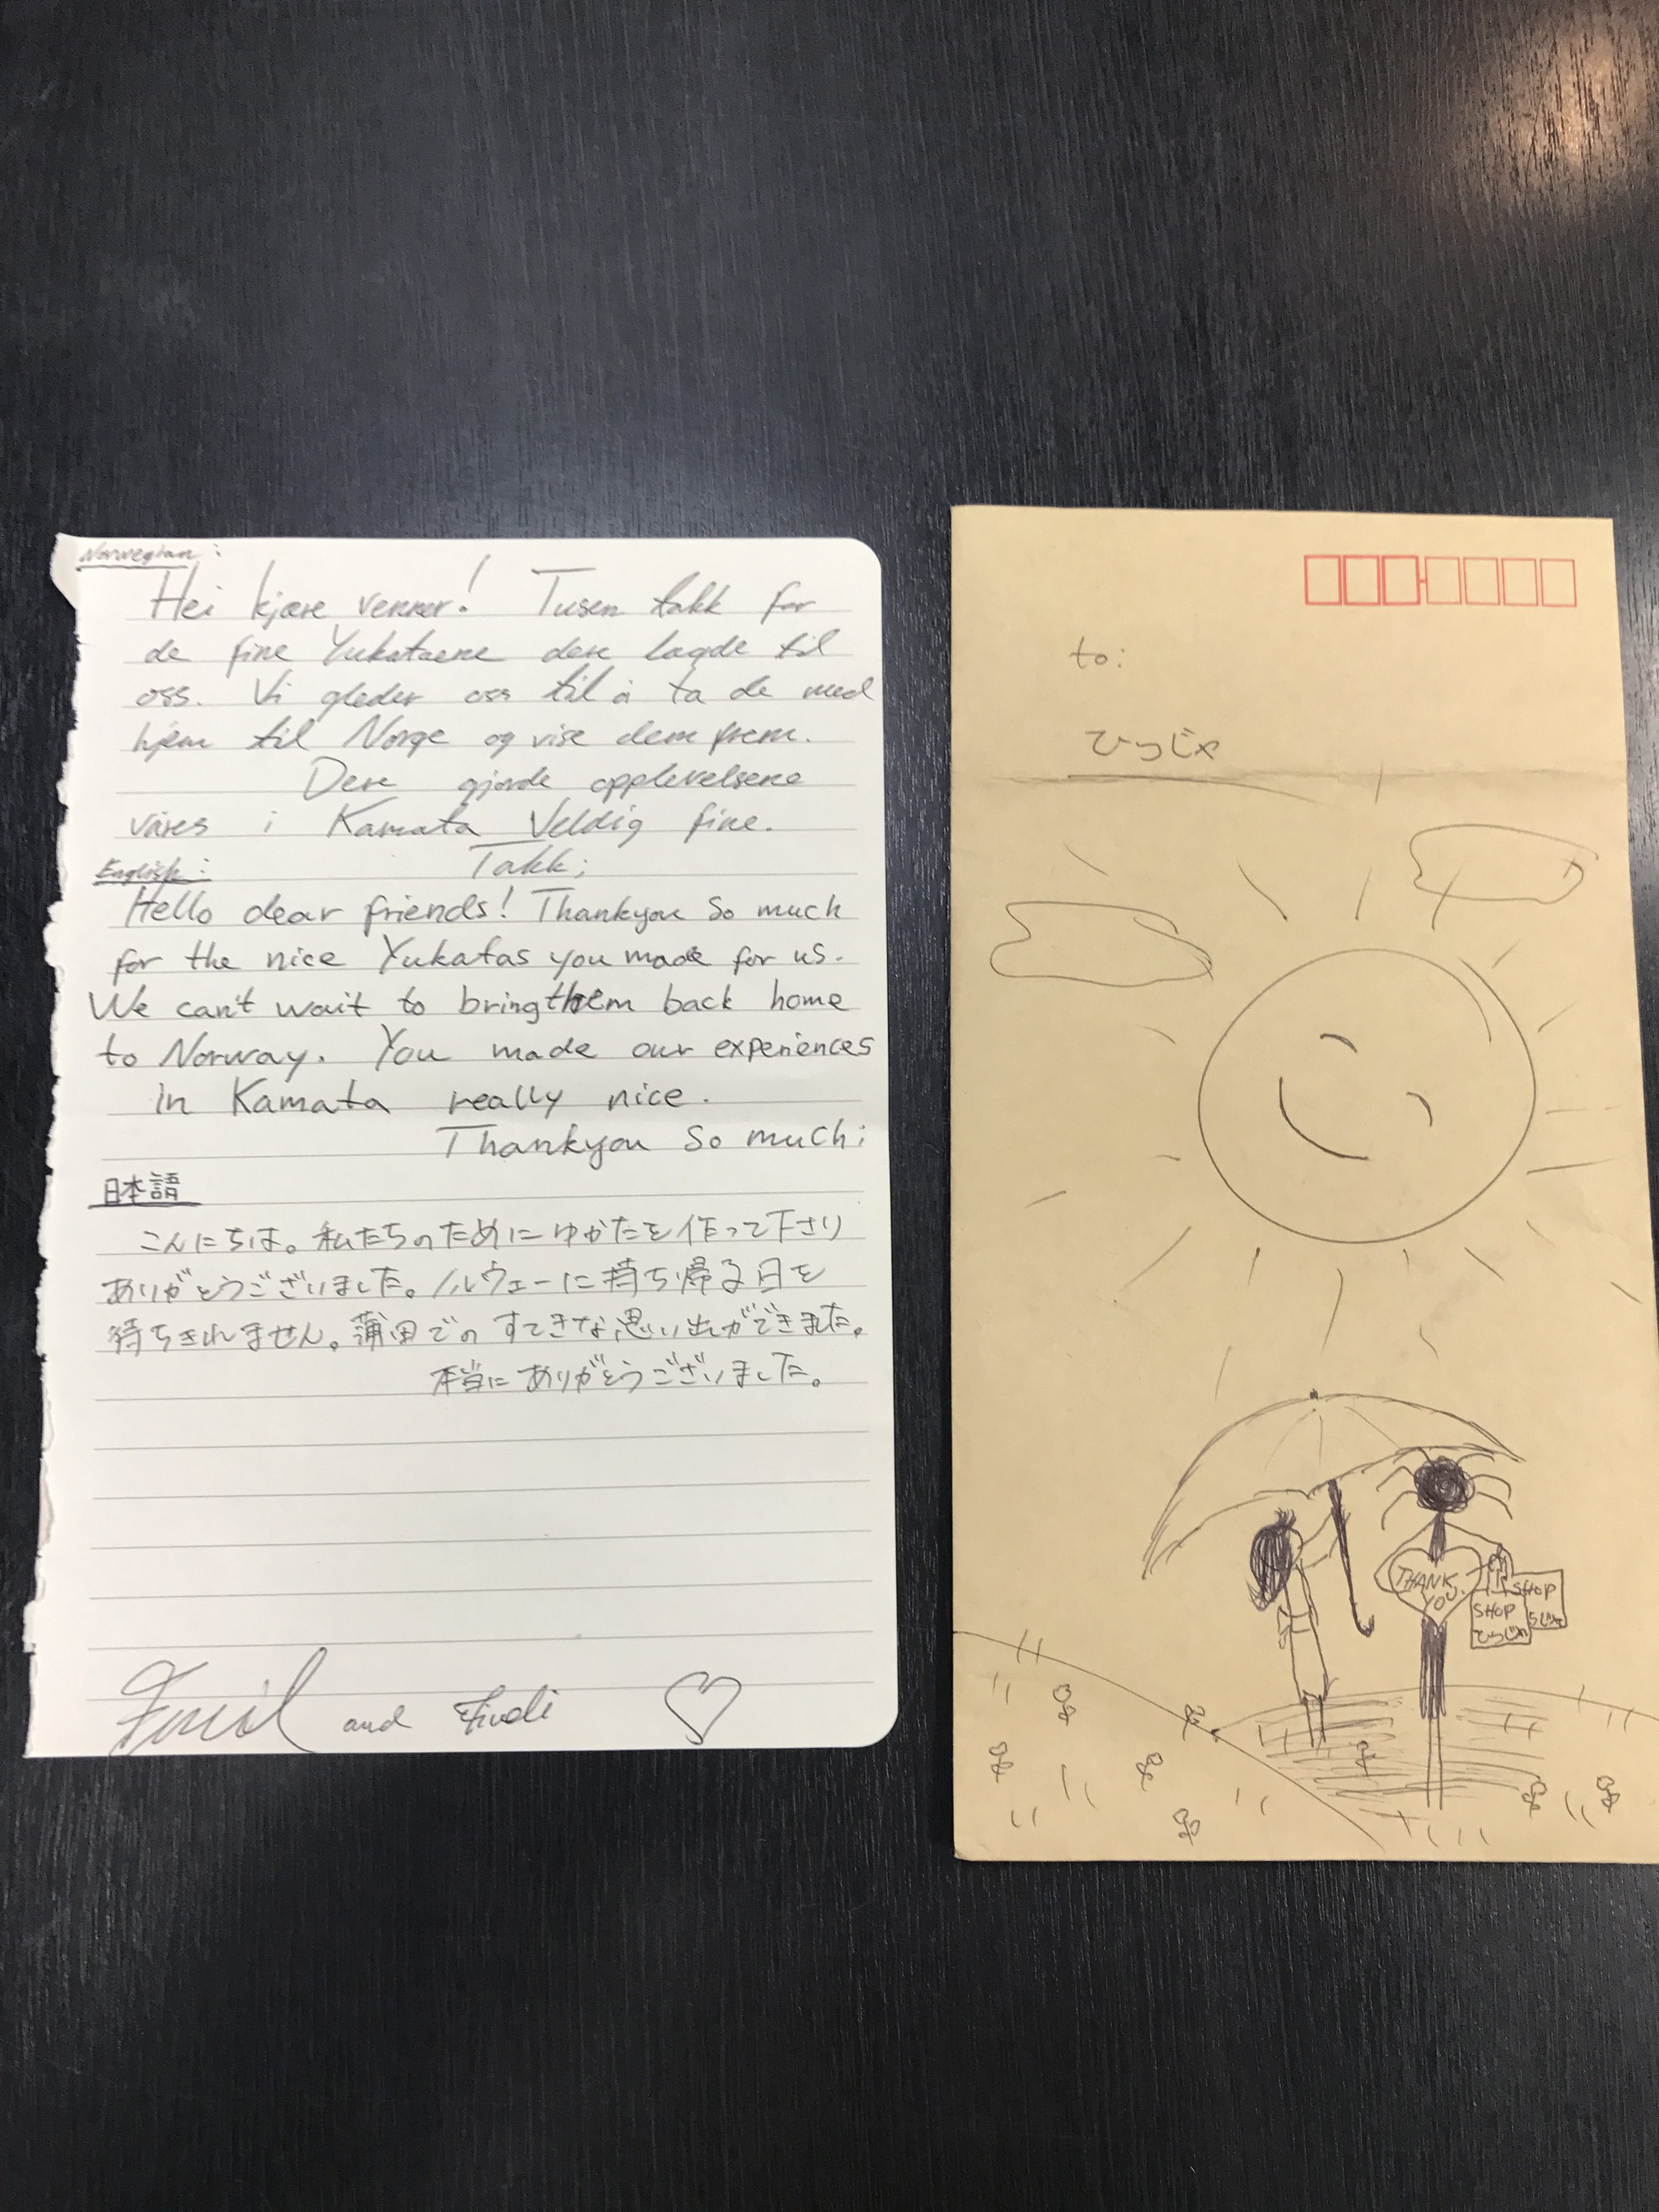 Norwegian:
Hei kjære venner! Tusen takk for
de fine Yukataene dere lagde til
oss. Vi gleder oss til å ta de med
hjem til Norge og vise dem frem.
Dere gjorde opplevelsene
våres i Kamata Veldig fine.
Takk;
English:
Hello dear friends! Thankyou So much
for the nice Yukatas you made for us.
We can't wait to bring them back home
to Norway. You made our experiences
in Kamata really nice.
Thankyou So much;
日本語
こんにちは。私たちのためにゆかたを作って下さり
ありがとうございました。ノルウェーに持ち帰る日を
待ちきれません。蒲田でのすてきな思い出ができました。
本当にありがとうございました。
and
to:
ひらじゃ
THANK
YOU
SHOP
SHOP